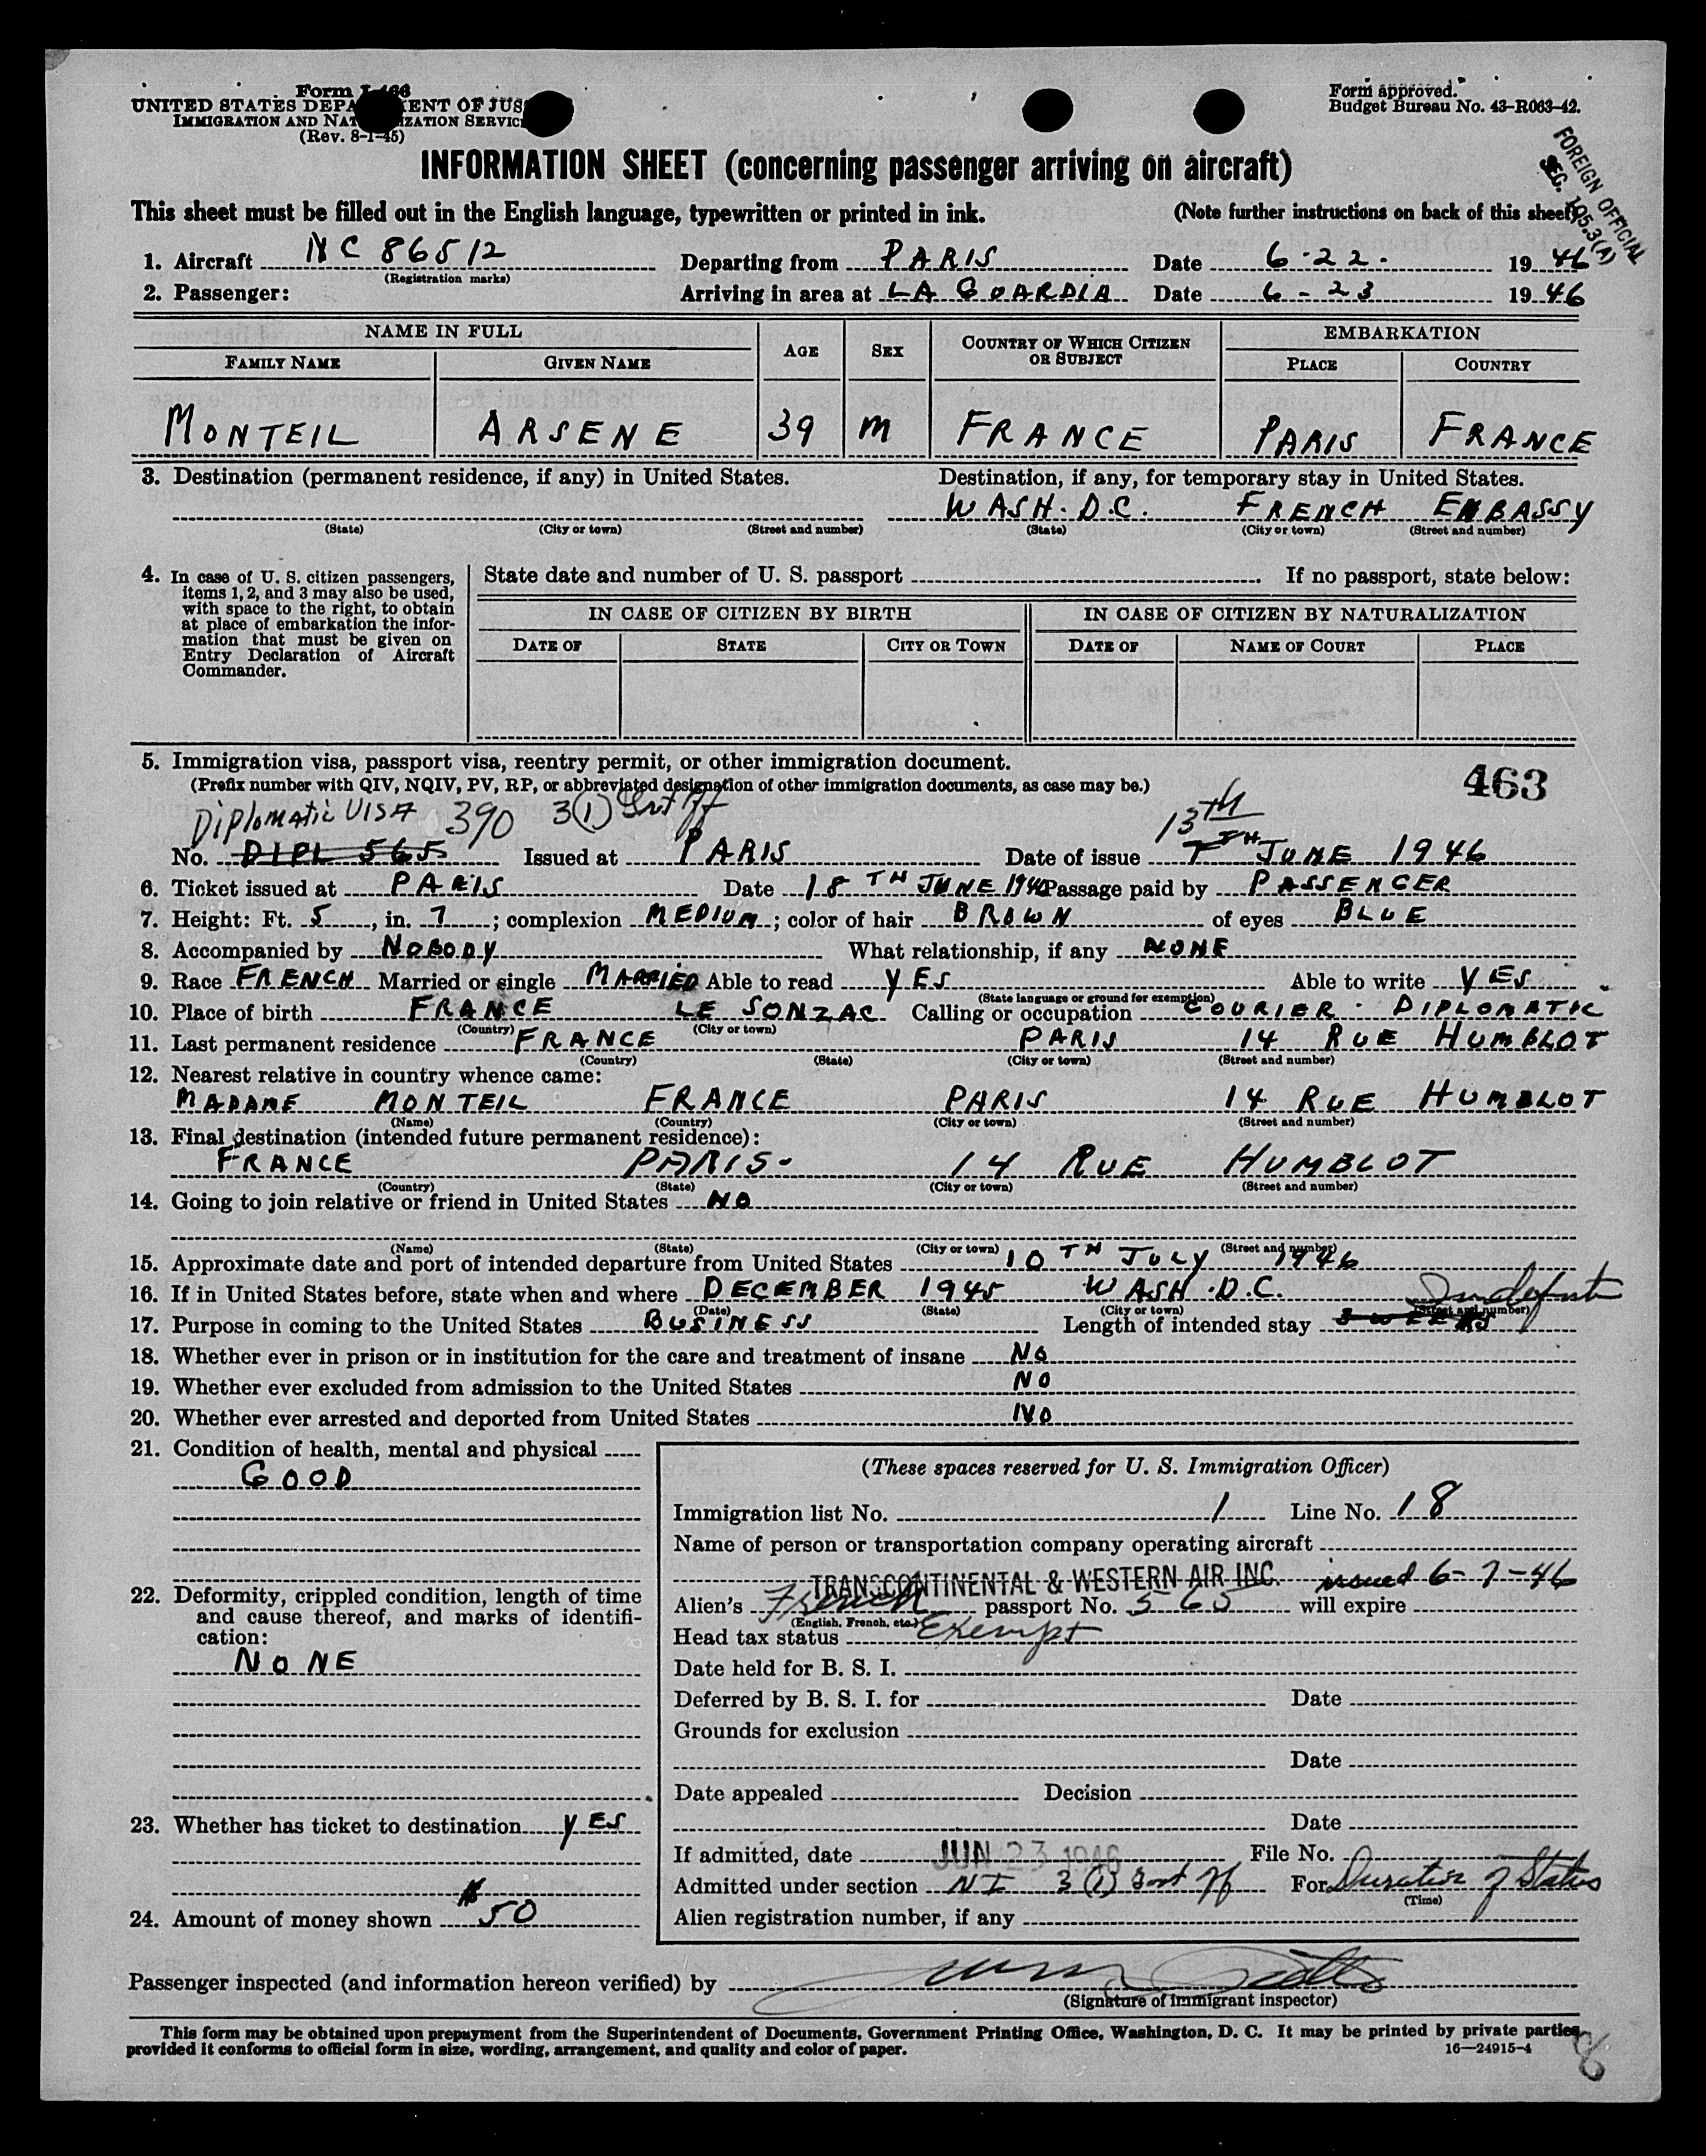 Form I-466
UNITED STATES DEPARTMENT OF JUS
IMMIGRATION AND NATURALIZATION SERVICE
(Rev. 8-1-45)
Form approved.
Budget Bureau No. 43-R063-42.
FOREIGN OFFICIAL
SEC. 105.3(A)
INFORMATION SHEET (concerning passenger arriving on aircraft)
This sheet must be filled out in the English language, typewritten or printed in ink. (Note further instructions on back of this sheet)
1. Aircraft NC 86512 Departing from PARIS Date 6-22- 1946
(Registration marks)
2. Passenger: Arriving in area at LA GUARDIA Date 6-23 1946
NAME IN FULL AGE SEX COUNTRY OF WHICH CITIZEN OR SUBJECT EMBARKATION
FAMILY NAME GIVEN NAME PLACE COUNTRY
MONTEIL ARSENE 39 M FRANCE PARIS FRANCE
3. Destination (permanent residence, if any) in United States. Destination, if any, for temporary stay in United States.
WASH. D.C. FRENCH EMBASSY
(State) (City or town) (Street and number) (State) (City or town) (Street and number)
4. In case of U. S. citizen passengers, items 1, 2, and 3 may also be used, with space to the right, to obtain at place of embarkation the information that must be given on Entry Declaration of Aircraft Commander.
State date and number of U. S. passport . If no passport, state below:
IN CASE OF CITIZEN BY BIRTH IN CASE OF CITIZEN BY NATURALIZATION
DATE OF STATE CITY OR TOWN DATE OF NAME OF COURT PLACE
5. Immigration visa, passport visa, reentry permit, or other immigration document.
(Prefix number with QIV, NQIV, PV, RP, or abbreviated designation of other immigration documents, as case may be.)
463
Diplomatic VISA 390 3(1) Govt Off 13TH
No. DIPL 565 Issued at PARIS Date of issue 7TH JUNE 1946
6. Ticket issued at PARIS Date 18TH JUNE 1946 Passage paid by PASSENGER
7. Height: Ft. 5, in. 7; complexion MEDIUM; color of hair BROWN of eyes BLUE
8. Accompanied by NOBODY What relationship, if any NONE
9. Race FRENCH Married or single MARRIED Able to read YES Able to write YES
(State language or ground for exemption)
10. Place of birth FRANCE LE SONZAC Calling or occupation COURIER - DIPLOMATIC
(Country) (City or town)
11. Last permanent residence FRANCE PARIS 14 RUE HUMBLOT
(Country) (State) (City or town) (Street and number)
12. Nearest relative in country whence came:
MADAME MONTEIL FRANCE PARIS 14 RUE HUMBLOT
(Name) (Country) (City or town) (Street and number)
13. Final destination (intended future permanent residence):
FRANCE PARIS- 14 RUE HUMBLOT
(Country) (State) (City or town) (Street and number)
14. Going to join relative or friend in United States NO
(Name) (State) (City or town) (Street and number)
15. Approximate date and port of intended departure from United States 10TH JULY 1946
16. If in United States before, state when and where DECEMBER 1945 WASH. D.C.
(Date) (State) (City or town) (Street and number)
Indefinite
17. Purpose in coming to the United States BUSINESS Length of intended stay 3 WEEKS
18. Whether ever in prison or in institution for the care and treatment of insane NO
19. Whether ever excluded from admission to the United States NO
20. Whether ever arrested and deported from United States NO
21. Condition of health, mental and physical
GOOD
22. Deformity, crippled condition, length of time and cause thereof, and marks of identification:
NONE
23. Whether has ticket to destination YES
24. Amount of money shown $50
(These spaces reserved for U. S. Immigration Officer)
Immigration list No. 1 Line No. 18
Name of person or transportation company operating aircraft
TRANSCONTINENTAL & WESTERN AIR INC. issued 6-7-46
Alien's French passport No. 565 will expire
(English, French, etc.)
Head tax status Exempt
Date held for B. S. I.
Deferred by B. S. I. for Date
Grounds for exclusion
Date
Date appealed Decision
Date
If admitted, date JUN 23 1946 File No.
Admitted under section NI 3(1) Govt Off For Duration of Status
(Time)
Alien registration number, if any
Passenger inspected (and information hereon verified) by
(Signature of immigrant inspector)
This form may be obtained upon prepayment from the Superintendent of Documents, Government Printing Office, Washington, D. C. It may be printed by private parties
provided it conforms to official form in size, wording, arrangement, and quality and color of paper. 16—24915-4
8